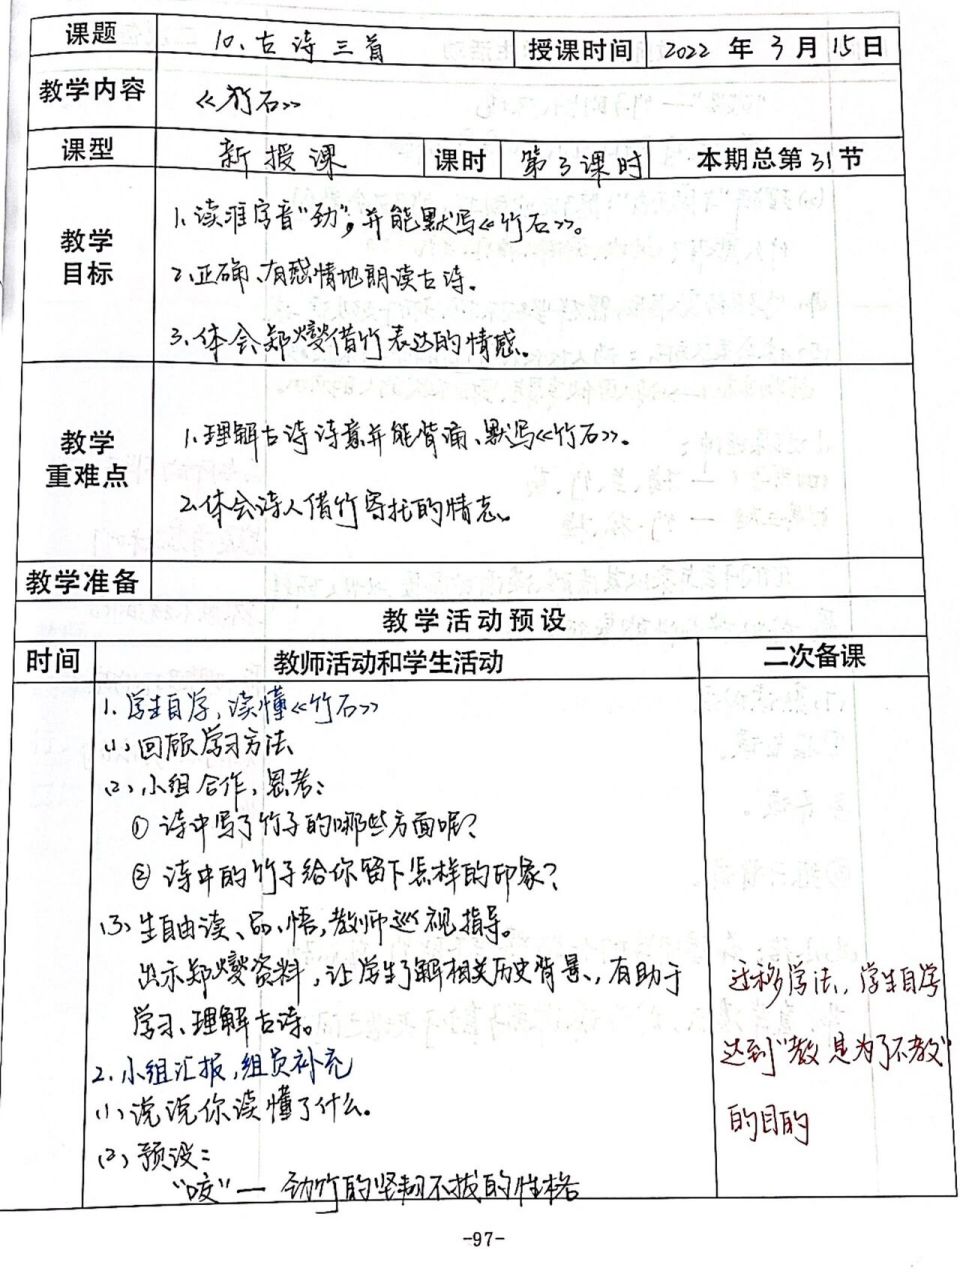 课题 10、古诗三首 授课时间 2022 年 3 月 15 日
教学内容 《竹石》
课型 新授课 课时 第3课时 本期总第 31 节
教学目标
1、读准字音“劲”,并能默写《竹石》。
2、正确、有感情地朗读古诗。
3、体会郑燮借竹表达的情感。
教学重难点
1、理解古诗诗意并能背诵、默写《竹石》。
2、体会诗人借竹寄托的情志。
教学准备
教学活动预设
时间 教师活动和学生活动 二次备课
1、学生自学,读懂《竹石》
(1)回顾学习方法
(2)、小组合作,思考:
① 诗中写了竹子的哪些方面呢?
② 诗中的竹子给你留下怎样的印象?
(3)生自由读、品、悟,教师巡视指导。
出示郑燮资料,让学生了解相关历史背景,有助于
学习、理解古诗。
2、小组汇报,组员补充
(1)说说你读懂了什么。
(2)预设:
“咬”— 劲竹的坚韧不拔的性格
迁移学法,学生自学
达到“教是为了不教”
的目的
-97-